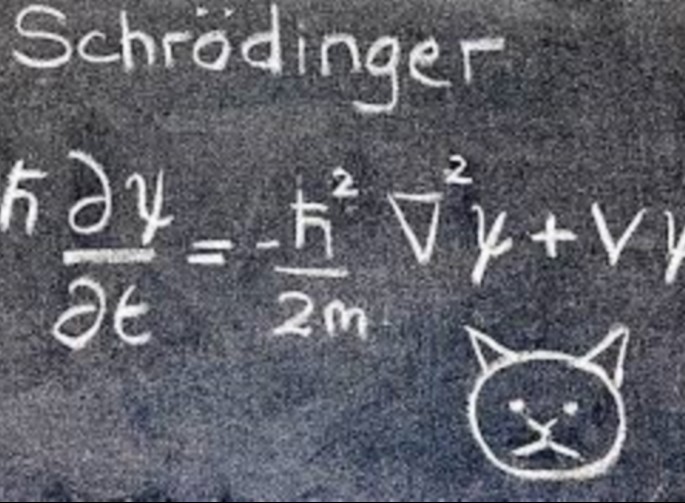 Schrödinger
ℏ ∂ψ/∂t = -ℏ²/2m ∇²ψ + Vψ